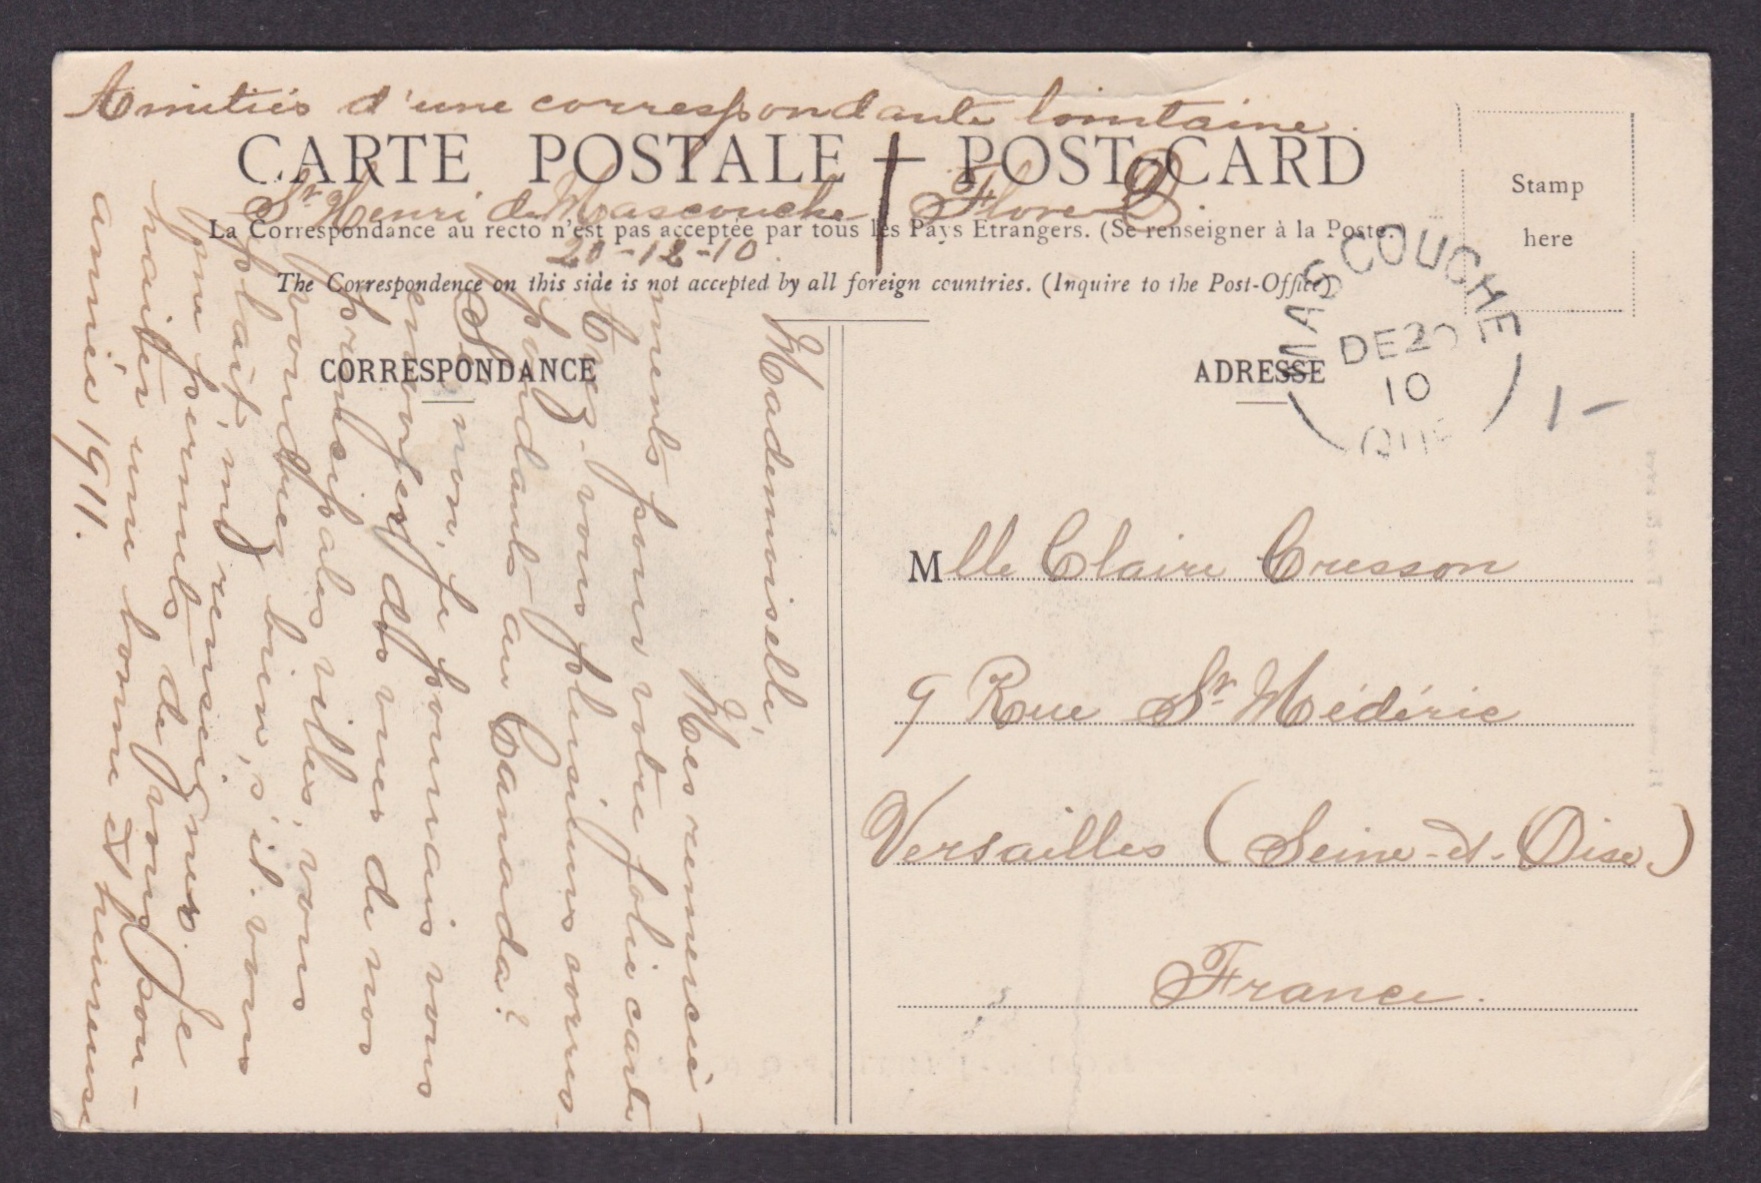 Amitiés d'une correspondante lointaine.
CARTE POSTALE + POST CARD
St Henri de Mascouche Flore D.
La Correspondance au recto n'est pas acceptée par tous les Pays Etrangers. (Se renseigner à la Poste.
20-12-10.
The Correspondence on this side is not accepted by all foreign countries. (Inquire to the Post-Office)
Stamp
here
MASCOUCHE
DE 20
10
QUE
1-
CORRESPONDANCE
ADRESSE
Mademoiselle,
Mes remercie-
ments pour votre jolie carte
Avez-vous plusieurs corres-
pondants au Canada?
Si non, je pourrais vous
envoyer des vues de nos
principales villes, vous
voudrez bien, s'il vous
plait, me renseigner. Je
me permets de vous sou-
haiter une bonne et heureuse
année 1911.
Mlle Claire Cresson
9 Rue St Médéric
Versailles (Seine-et-Oise.)
France.